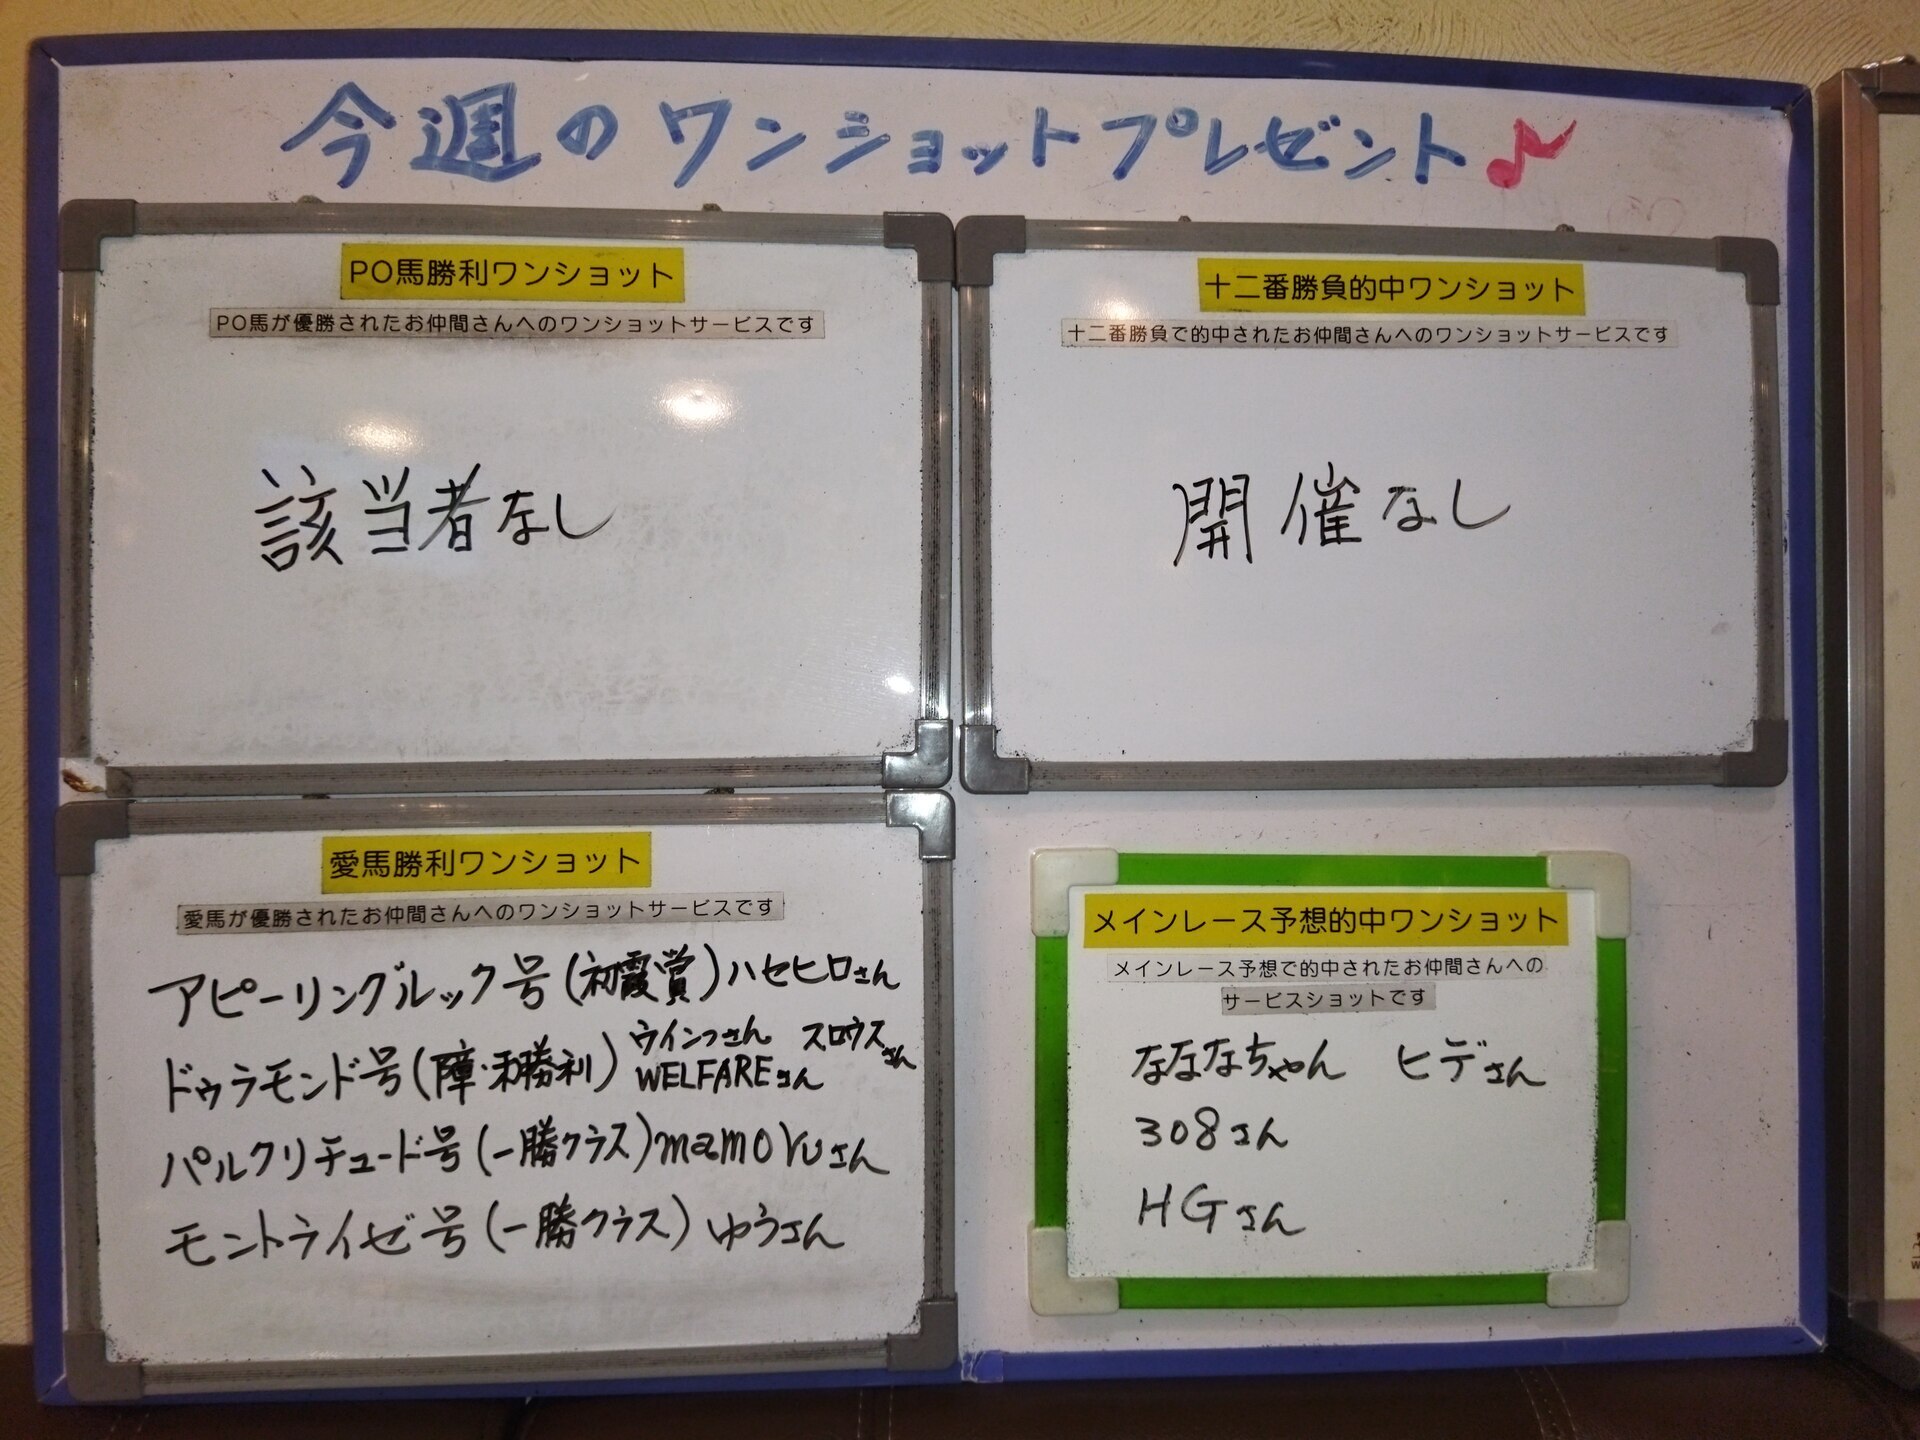 今週のワンショットプレゼント♪
PO馬勝利ワンショット
PO馬が優勝されたお仲間さんへのワンショットサービスです
該当者なし
十二番勝負的中ワンショット
十二番勝負で的中されたお仲間さんへのワンショットサービスです
開催なし
愛馬勝利ワンショット
愛馬が優勝されたお仲間さんへのワンショットサービスです
アピーリングルック号(初霞賞)ハセヒロさん
ドゥラモンド号(障・未勝利)ウインつさん スロウスさん
WELFAREさん
パルクリチュード号(一勝クラス)mamoruさん
モントライゼ号(一勝クラス)ゆうさん
メインレース予想的中ワンショット
メインレース予想で的中されたお仲間さんへの
サービスショットです
なななちゃん ヒデさん
308さん
HGさん